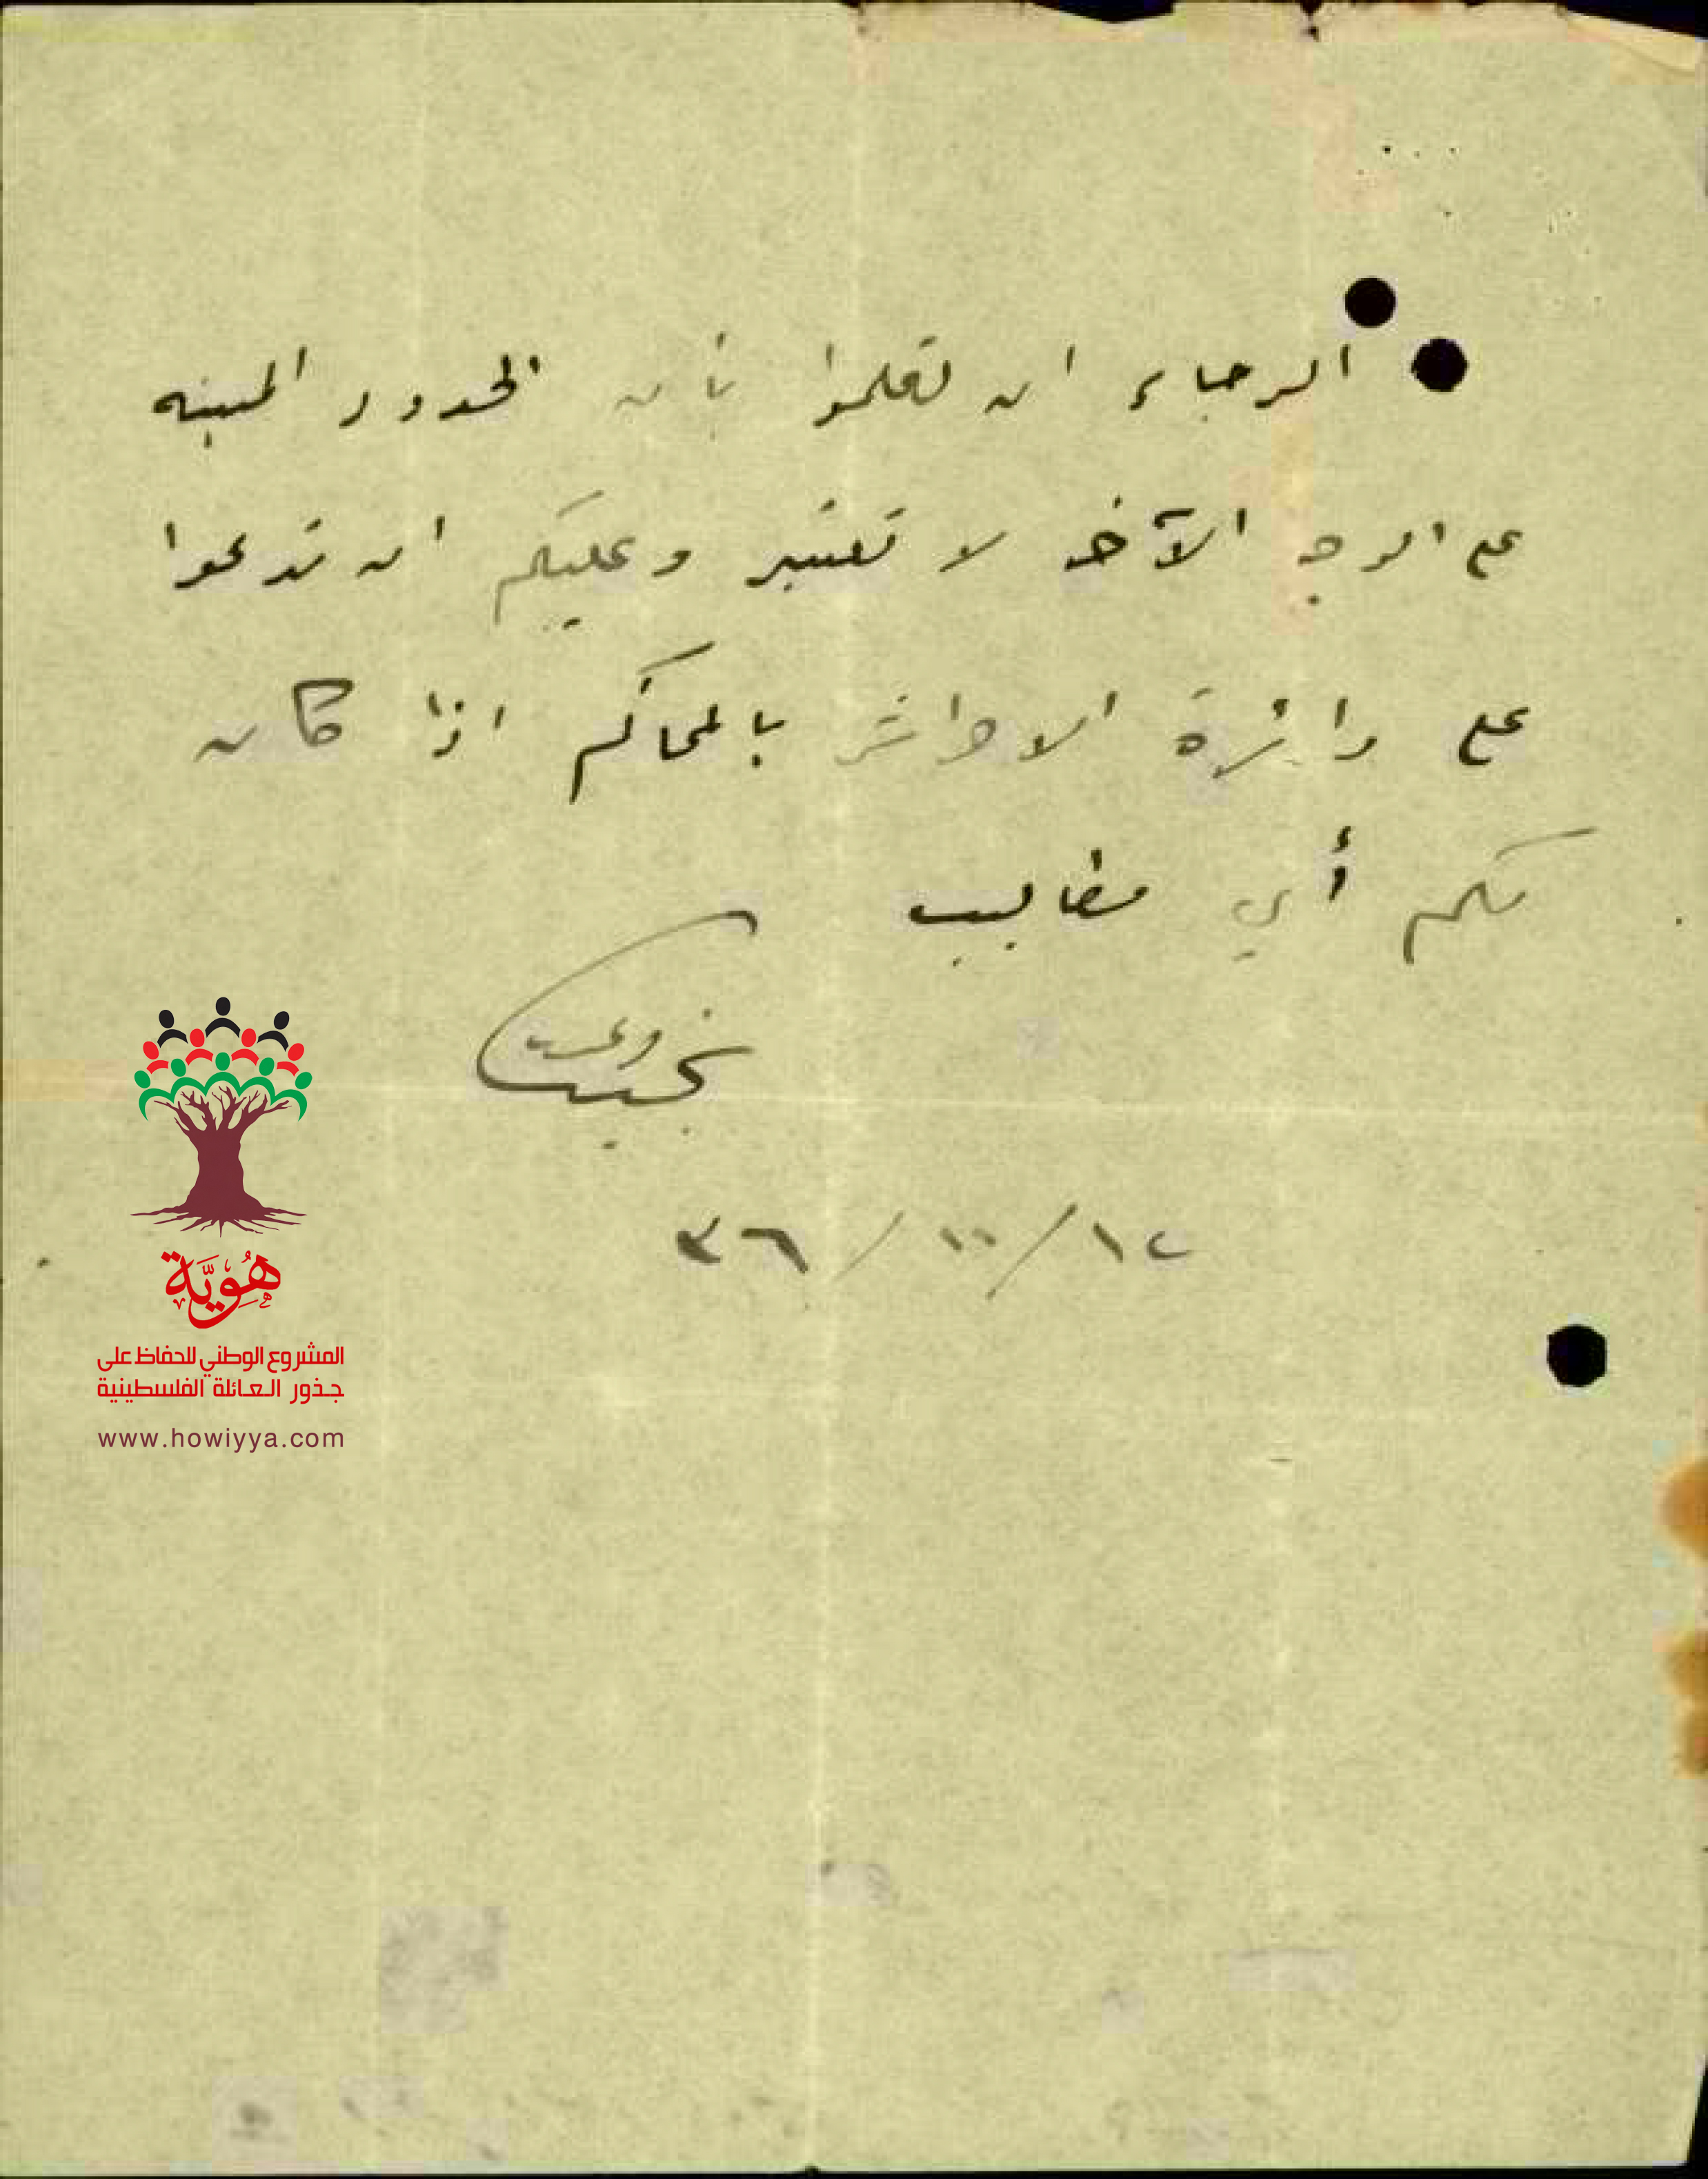 الرجاء ان تعلموا بأن الحدود المبينه
على الوجه الآخر لا تعتبر وعليكم ان تدعوا
على دائرة الاحراش بالمحاكم اذا كان
لكم أي مطاليب
نجيب
١٢/١٠/٣٦
هُوِيَّة
المشروع الوطني للحفاظ على
جذور العائلة الفلسطينية
www.howiyya.com